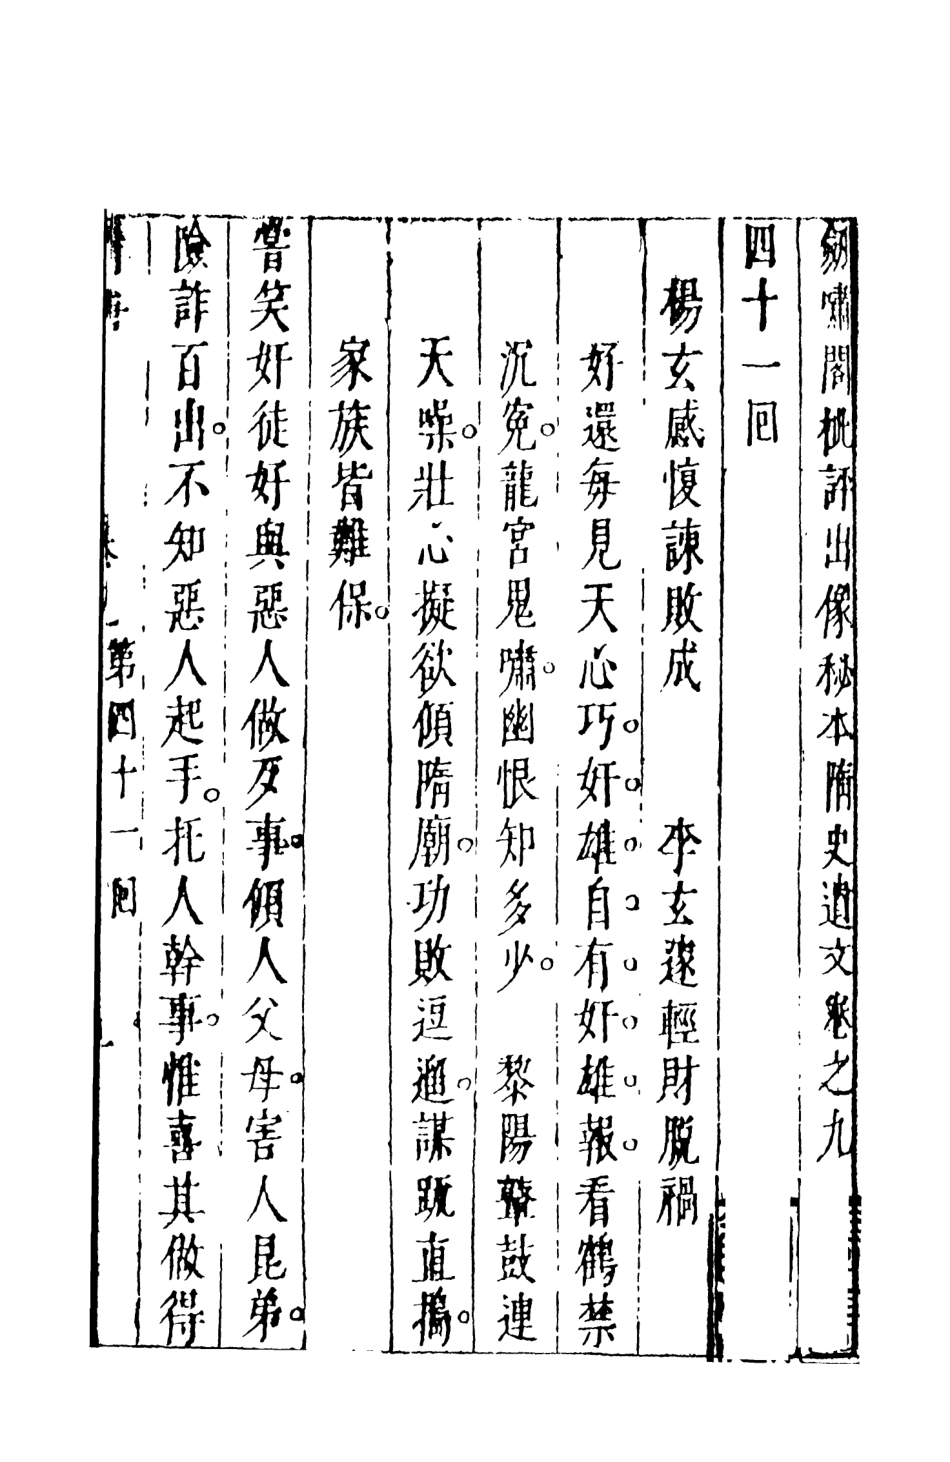 劒嘯閣批評出像秘本隋史遺文卷之九
四十一回
楊玄感愎諫敗成　李玄邃輕財脫禍
好還每見天心巧。奸雄自有奸雄報看鶴禁
沉寃。龍宮鬼嘯。幽恨知多少。　黎陽鼙鼓連
天噪。壯心擬欲傾隋廟。功敗逗遛。謀踈直搗。
家族皆難保。
嘗笑奸徒好與惡人做歹事。傾人父母。害人昆弟。
險詐百出。不知惡人起手。托人幹事。惟喜其做得
第四十一回